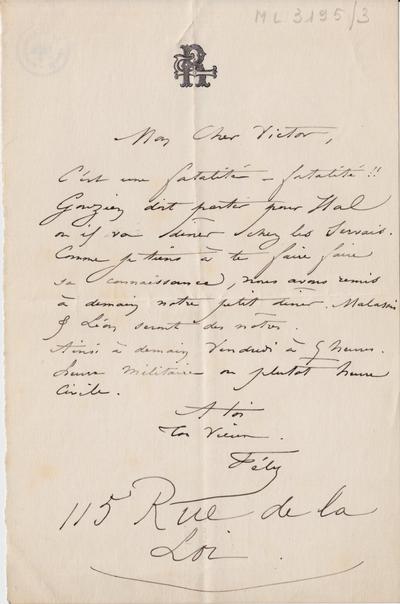 ML 3195/3
Mon Cher Victor,
C'est une fatalité – fatalité !!
Gouzien doit partir pour Hal
où il va dîner chez les Servais.
Comme je tiens à te faire faire
sa connaissance, nous avons remis
à demain notre petit dîner. Malassis
& Léon seront des nôtres.
Ainsi à demain Vendredi à 5 heures.
heure militaire ou plutot heure
Civile.
A toi
Ton Vieux.
Fély
115 Rue de la
Loi.